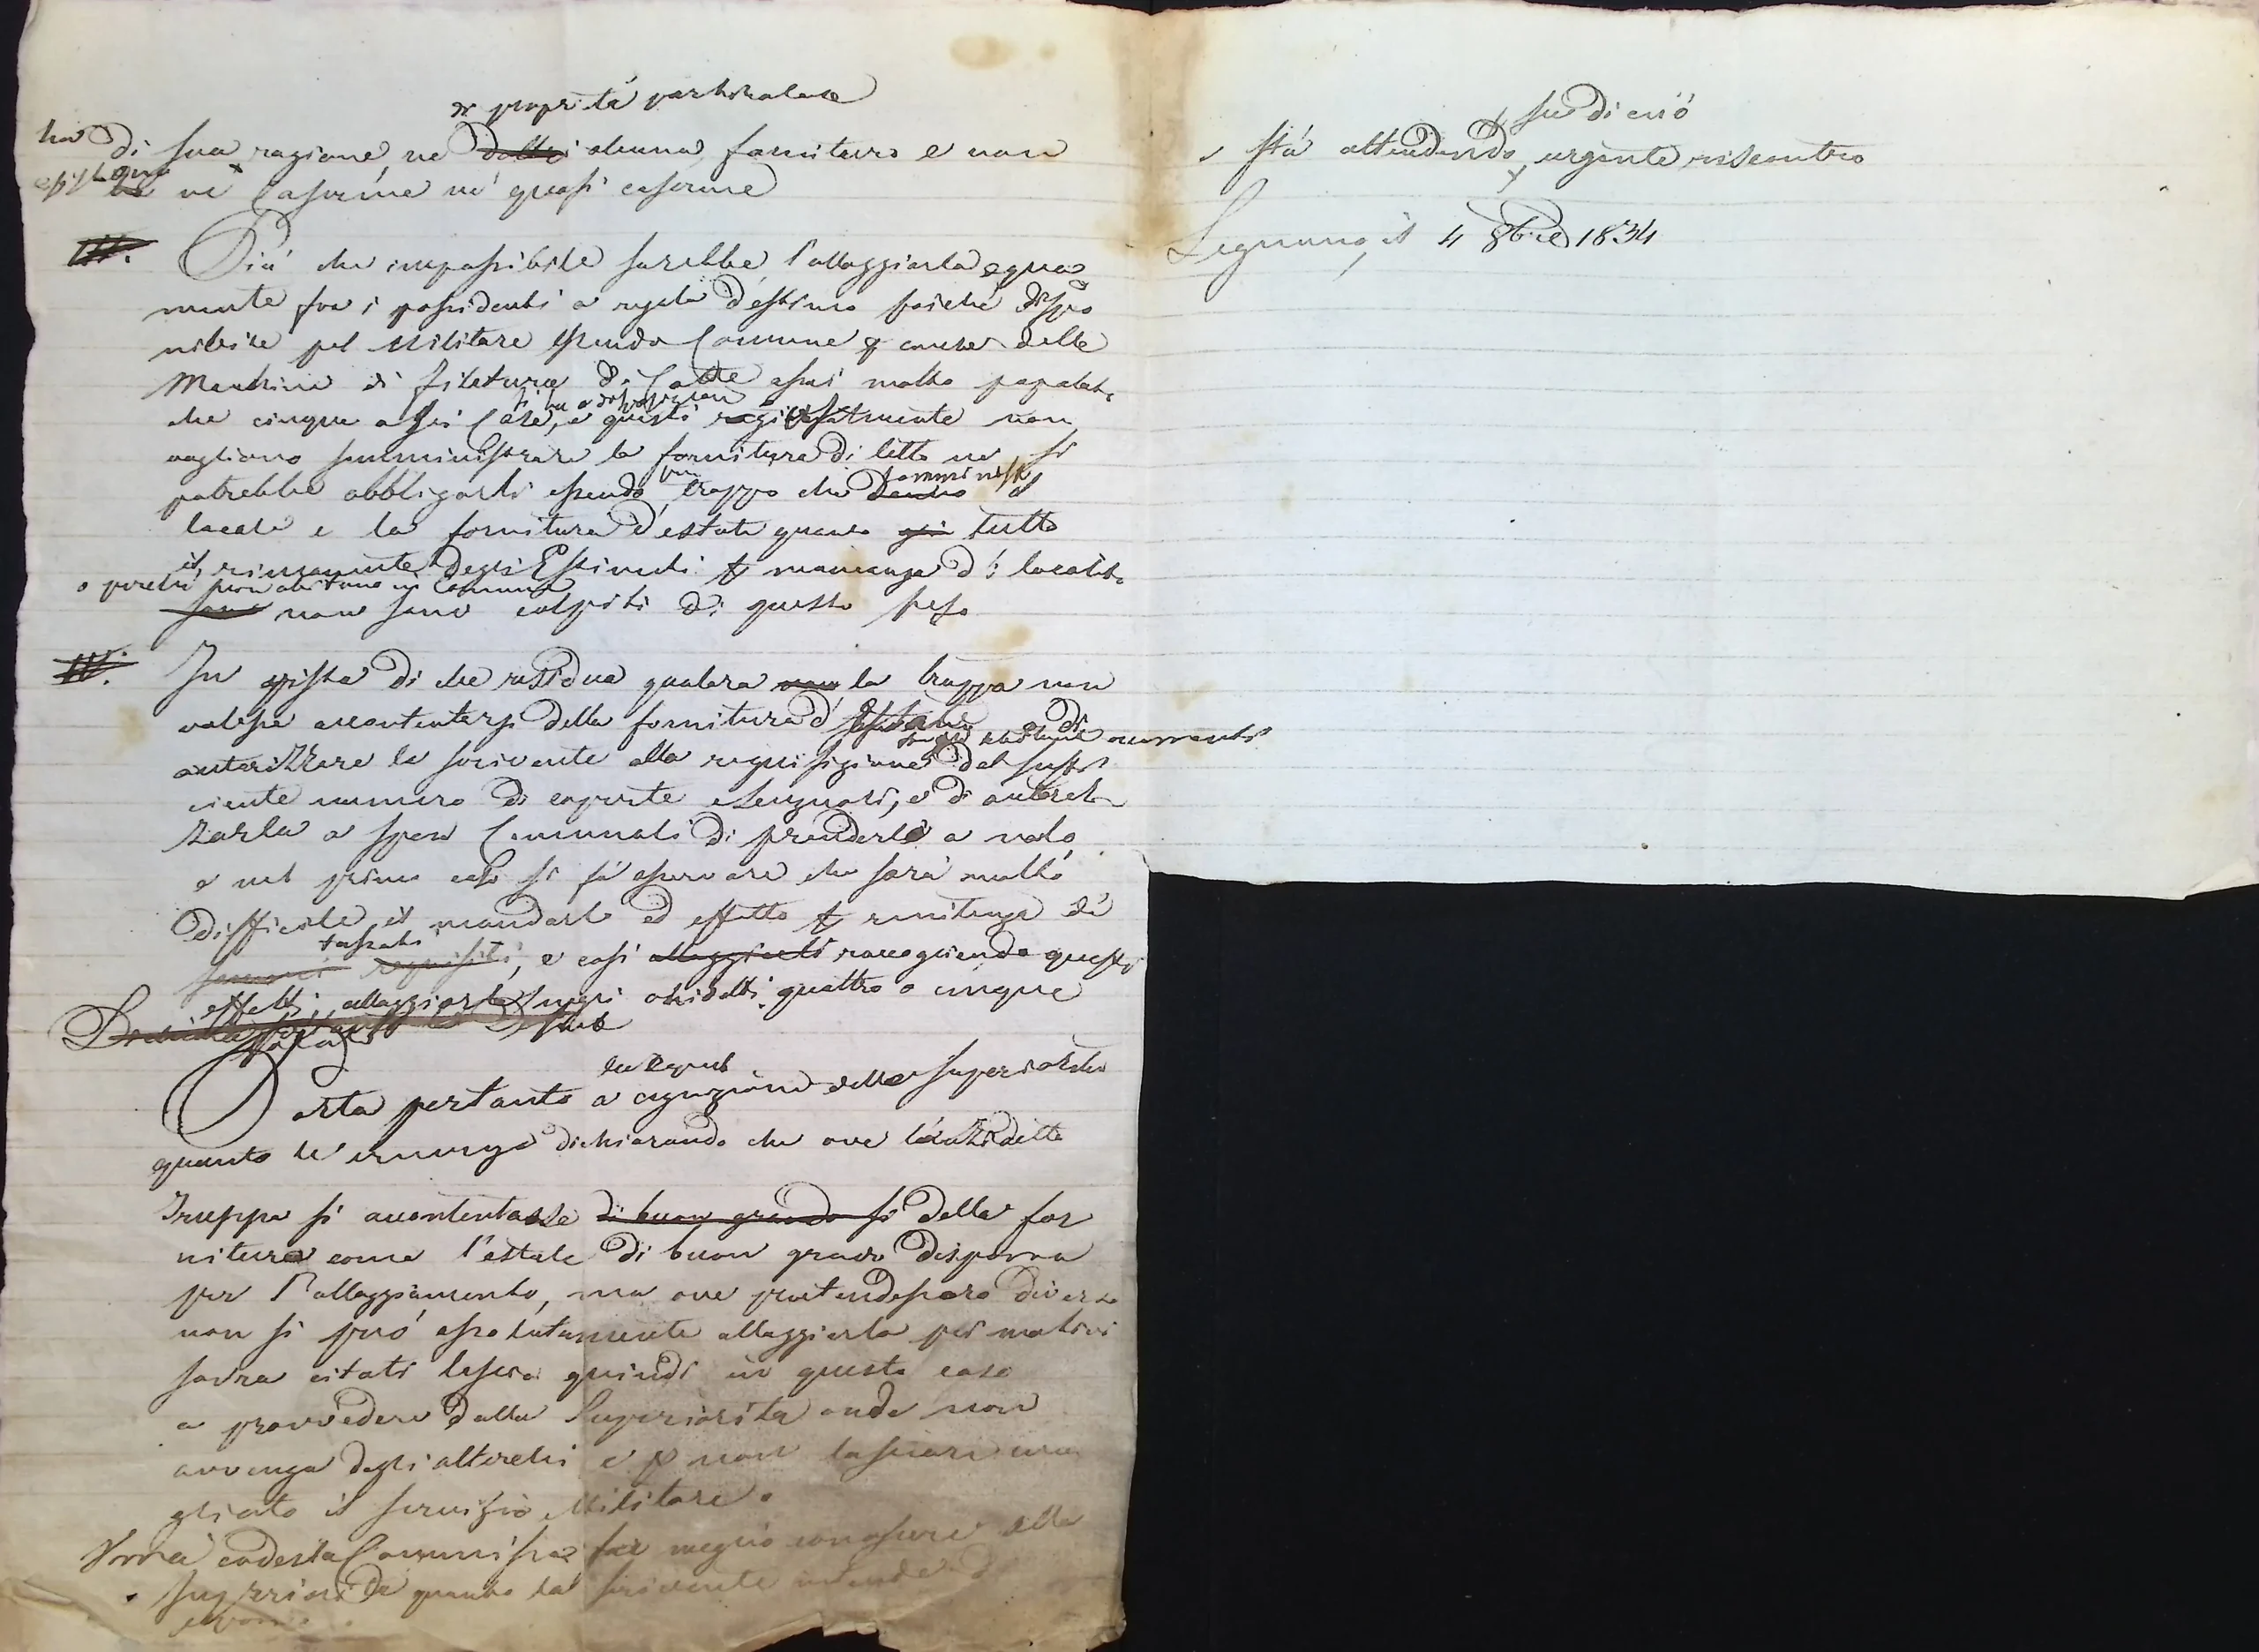 di proprietà particolare
ha di sua ragione ne dalla alcuna fornitura e non
esistono ne Caserme ne quasi caserme
III. Più che impossibile sarebbe l'alloggiarla equa
mente fra i possidenti a regola d'estimo poiché dispo
nibile pel Militare essendo Comune p causa delle
Macchine di filatura di Cotte assai molto popolato
che cinque o sei Case, e questi
vogliono somministrare la fornitura di letto ne si
potrebbe obbligarli essendo pur troppo che danno il
locale e la fornitura d'estate quando già tutto
il rimanente degli Estimati p mancanza di località
o perché non abitano in Comune
sono non sono colpiti di questo peso
IV. In vista di che residua qualora non la truppa non
volesse accontentarsi della fornitura d'Estate di
autorizzare la scrivente alla requisizione del suffi
ciente numero di coperte e lenzuoli, o di autoriz
zarla a spese Comunali di prenderle a nolo
e nel primo caso si fà osservare che sarà molto
difficile il mandarlo ad effetto p renitenza di
tassati
requisiti, e così alloggiarli raccogliendo questi
effetti, alloggiarla negli anzidetti quattro o cinque
locali
Porta pertanto a cognizione della Superiorità
quanto le emerge dichiarando che ove l'anzidetta
Truppa si accontentasse di buon grando si della for
nitura come l'estate di buon grado disporrà
per l'alloggiamento, ma ove pretendessero diverso
non si può assolutamente alloggiarla pei motivi
sovra citati lascia quindi in questo caso
a provvedere dalla Superiorità onde non
avvenga degli alterchi e p non lasciare inca
gliato il servizio Militare.
Vorrà codesta Commissa far meglio conoscere alla
Superiorità quanto la scrivente intende d
esporre
su di ciò
e stà attendendo urgente riscontro
Legnano, il 4 8bre 1834